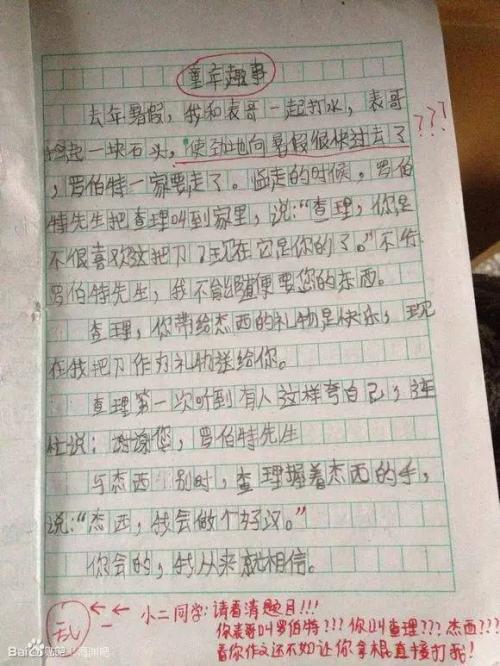 童年趣事
去年暑假，我和表哥一起打水，表哥
捡起一块石头，使劲地向暑假很快过去了
???
，罗伯特一家要走了。临走的时候，罗伯
特先生把查理叫到家里，说：“查理，你是
不很喜欢这把刀？现在它是你的了。”不行
罗伯特先生，我不能随便要您的东西。
查理，你带给杰西的礼物是快乐，现
在我把刀作为礼物送给你。
查理第一次听到有人这样夸自己，连
忙说：谢谢您，罗伯特先生
与杰西 别时，查理握着杰西的手，
说：“杰西，我会做个好汉。”
你会的，我从来就相信。
乱
小二同学：请看清题目!!!
你表哥叫罗伯特???你叫查理???杰西???
看你作文还不如让你拿棍直接打我!
Bai 贴吧